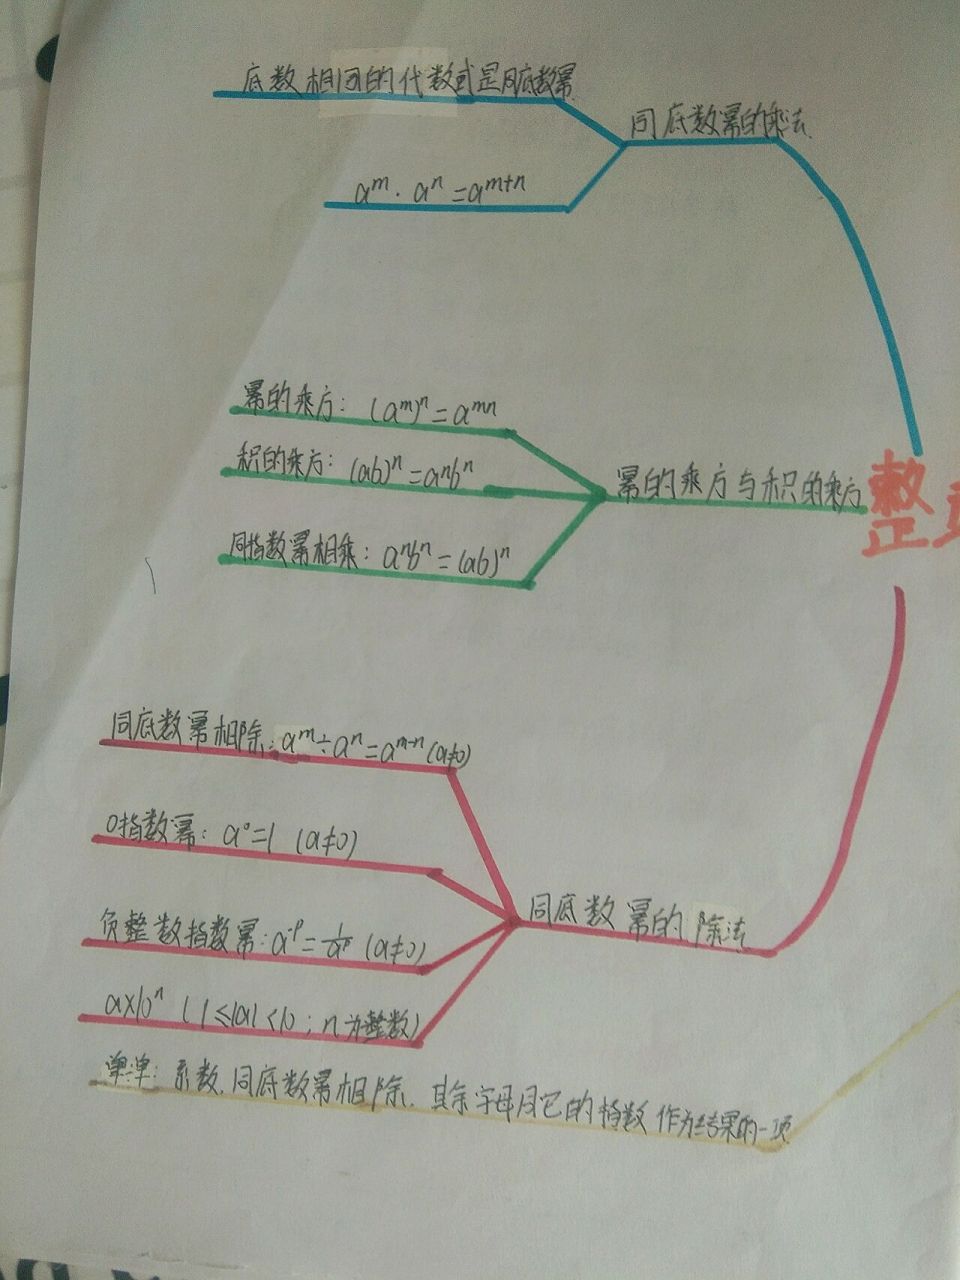 底数相同的代数式是同底数幂
同底数幂的乘法
aᵐ · aⁿ = aᵐ⁺ⁿ
幂的乘方: (aᵐ)ⁿ = aᵐⁿ
积的乘方: (ab)ⁿ = aⁿbⁿ
幂的乘方与积的乘方
整
同指数幂相乘: aⁿbⁿ = (ab)ⁿ
同底数幂相除: aᵐ÷aⁿ = aᵐ⁻ⁿ (a≠0)
0指数幂: a⁰=1 (a≠0)
同底数幂的除法
负整数指数幂: a⁻ᵖ = 1/aᵖ (a≠0)
a×10ⁿ (1≤|a|<10; n为整数)
单÷单: 系数.同底数幂相除.其余字母同它的指数作为结果的一项